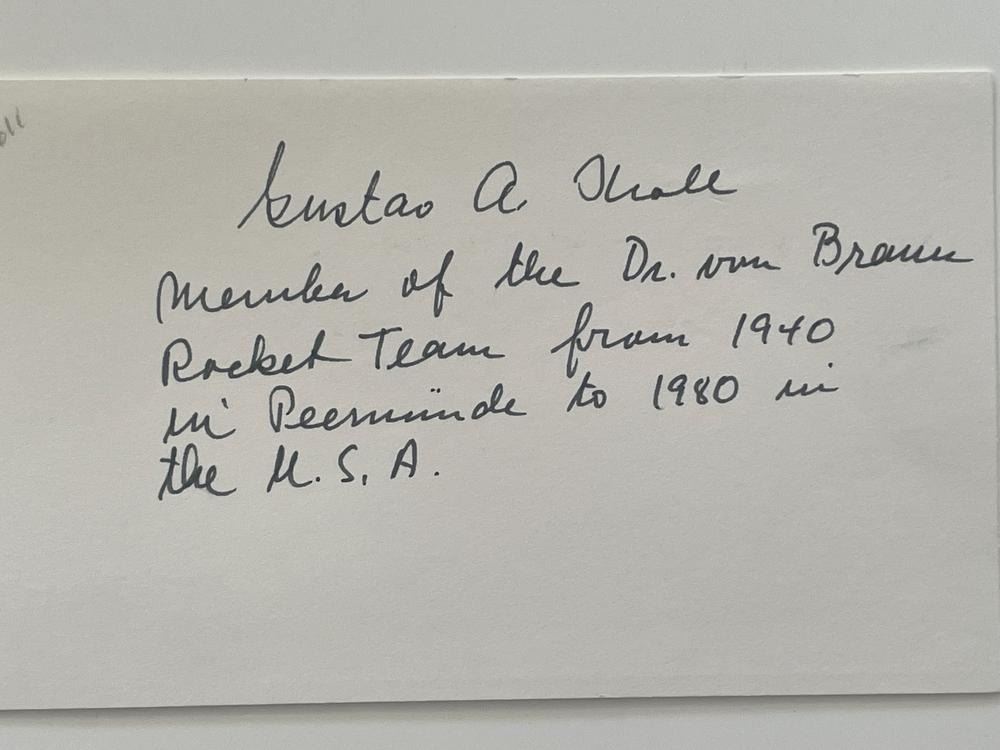 oll
Gustav A. Kroll
Member of the Dr. von Braun
Rocket Team from 1940
in Peenmünde to 1980 in
the U.S.A.